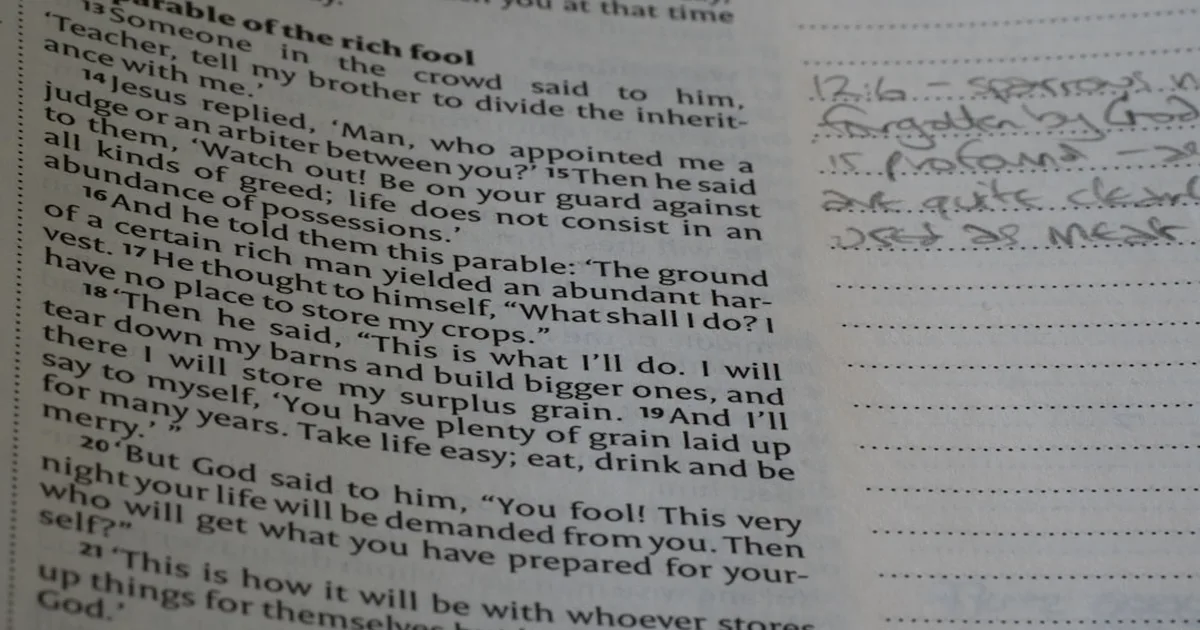 you at that time
parable of the rich fool
13 Someone in the crowd said to him,
‘Teacher, tell my brother to divide the inherit-
ance with me.’
14 Jesus replied, ‘Man, who appointed me a
judge or an arbiter between you?’ 15 Then he said
to them, ‘Watch out! Be on your guard against
all kinds of greed; life does not consist in an
abundance of possessions.’
16 And he told them this parable: ‘The ground
of a certain rich man yielded an abundant har-
vest. 17 He thought to himself, “What shall I do? I
have no place to store my crops.”
18 ‘Then he said, “This is what I’ll do. I will
tear down my barns and build bigger ones, and
there I will store my surplus grain. 19 And I’ll
say to myself, ‘You have plenty of grain laid up
for many years. Take life easy; eat, drink and be
merry.’ ”
20 ‘But God said to him, “You fool! This very
night your life will be demanded from you. Then
who will get what you have prepared for your-
self?”
21 ‘This is how it will be with whoever stores
up things for themselves
God.’
12:6 – sparrows
forgotten by God
is profound –
are quite
used as meat